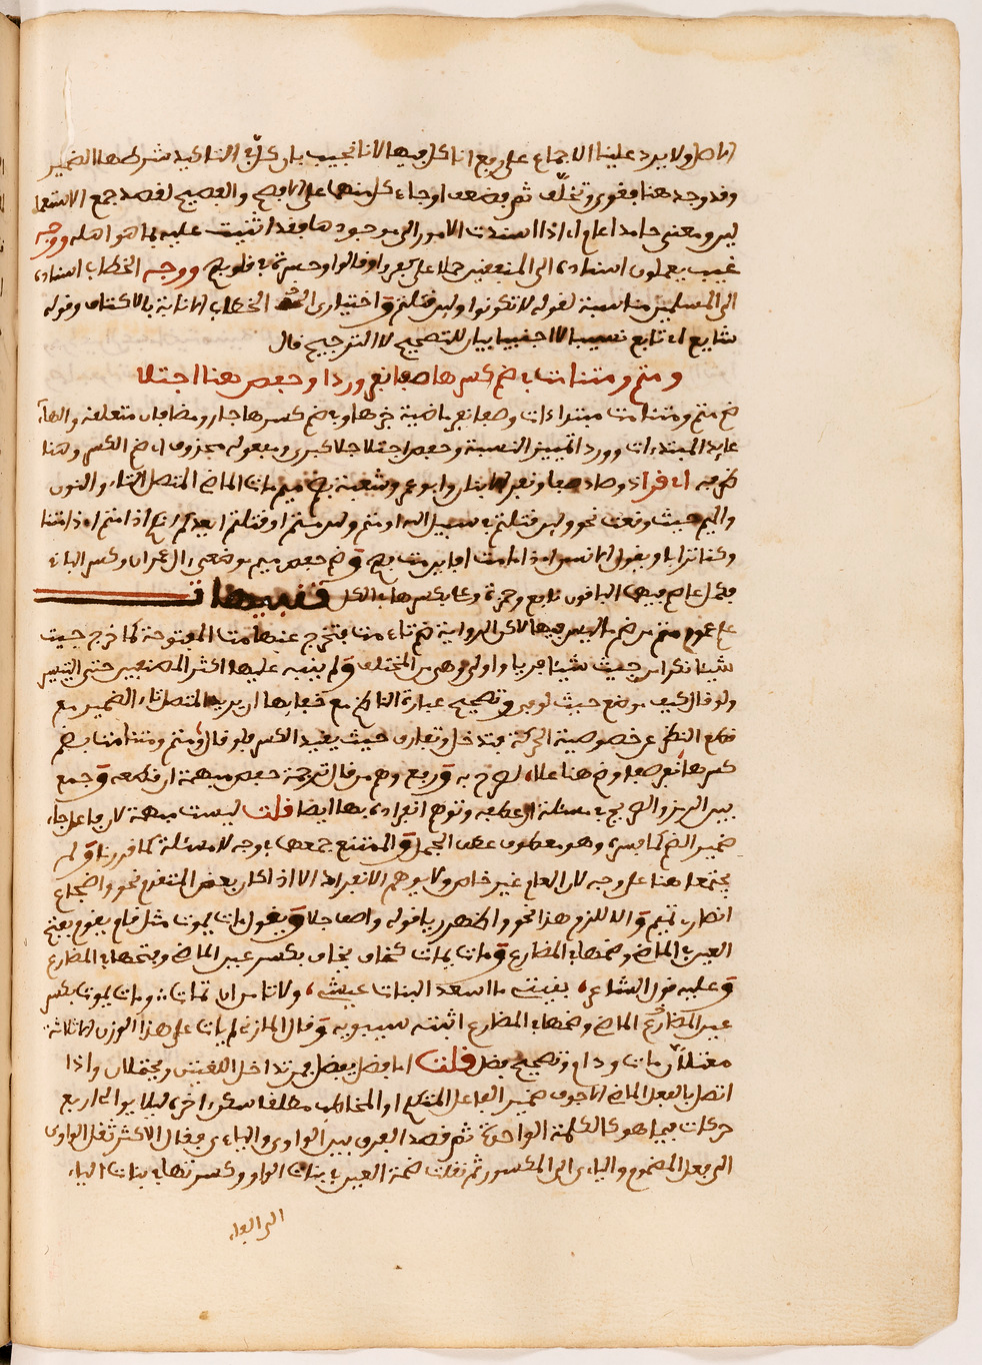 اناصل ولا يرد علينا الاجماع على رفع انا كل فيها لانا نجيب بان كل في التاكيد شرطها الضمير
وقد وجد هنا فقوى وتخلف ثم فضعف اوجاء كل منهما على الافصح والفصيح لقصد جمع الاستعما
ليس ومعنى حامدا عاملا اذا اسندت الامور الى موجودها فقد اثنيت عليه بما هو اهله ووجه
غيب يعملون اسناده الى المنافقين حملا على كفروا وقالوا وحسرة في قلوبهم ووجه الخطاب اسناده
الى المسلمين مناسبة لقوله لا تكونوا ولين قتلتم واختيارى الخطاب لاناية بالاكتناف وقوله
شايع اى تابع نسيبا لا اجنبيا بيان للتصحيح لا الترجيح قال
ومتم ومتنا مت في ضم كسرها صفا نفر وردا وحفص هنا اجتلا
ض متم ومتنا مت مبتداءات وصفا نفر ماضية خبرها وفي ضم كسرها جار ومضافان متعلقة والهاء
عايد المبتدءات ووردا تمييز النسبة وحفص اجتلا جلا كبرى ومفعوله محذوف اى ضم الكسر وهنا
ظرفه اى قرا ذو صاد صفا ونفر ابنان وابو عمر وشعبة بضم ميم مات الماضى المتصل بالتاء والنون
والميم حيث وقعت نحو ولين قتلتم في سبيل الله او متم ولين متم او قتلتم ايعدكم انكم اذا متم اءذا متنا
وكنا ترابا ويقول الانسان اءذا ما مت افاين مت فهم وضم حفص ميم موضعى ال عمران وكسر الباقى
فكل عاصم فيهما الباقون نافع وحمزة وعلى بكسرها في الكل تنبيهات
علم عموم متم من ضم ما ليس فيها لاكن الرواية ضم تاء مت فتخرج عنها مت المفتوحة كما خرج جيت
شيئا نكرا من جيت شيئا فريا واولى وهى من المختلف ولم ينبه عليها اكثر المصنفين حتى التيسير
ولو قال كيف موضع حيث لوفى وتصحيح عبارة الناظم مع خفايها ان يريد المتصل بتاء الضمير مع
قطع النظر عن خصوصية الحركة فتدخل وتعارف حيث يفيد الكسر فلو قال ومتم ومتنا مت بضم
كسرها نفر صفا وضم هنا علا لصرح به ورفع وهم من قال ترجمة حفص مبهمة ان قطعه وجمع
بين الرمز والصريح في مسئلة ان عطفه وتوهم انفراده بها ايضا قلت ليست مبهمة لان فاعل جاء
ضمير الضم كما فسره وهو معطوف عطف الجمل والممتنع جمعهما بوجه لا مسئلة كما قررنا ولم
يجتمعا هنا على وجه لان العام غير خاص ولا يوهم الانفراد الا اذا كان بعض المتقدم نحو واضجاع
انصارى تميم والا للزم هذا نحو واظهر ريا قوله واصفا جلا ويقول مات يموت مثل قام يقوم بفتح
العين في الماضى وضمها في المضارع ومات يمات كخاف يخاف بكسر عين الماضى وفتحها في المضارع
وعليه قول الشاعر بنيتى ما اسعد البنات عيشى ولا تامن ان تمات ومات يموت بكسر
عين الماضى وضمها في المضارع اثبته سيبويه وقال المازنى لم يات على هذا الوزن الا ثلاثة
معتلان مات ودام وصحيح فضل قلت اما فضل يفضل فمن تداخل اللغتين ويحتملان واذا
اتصل بالفعل الماضى الاجوف ضمير الفاعل المتكلم او المخاطب مطلقا سكن اخره ليلا يوالى اربع
حركات فيما هو كالكلمة الواحدة ثم قصد الفرق بين الواوى والياءى فقال الاكثر نقل الواوى
الى فعل المضموم والياءى الى المكسور ثم نقلت ضمة العين في بنات الواو وكسرتها في بنات الياء
الى الفاء